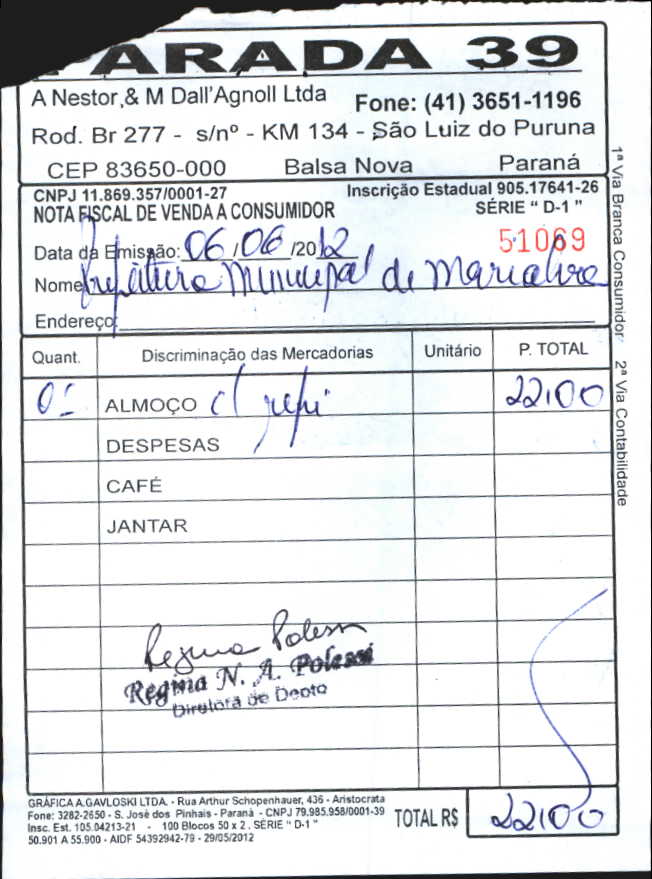 PARADA 39
A Nestor & M Dall'Agnoll Ltda Fone: (41) 3651-1196
Rod. Br 277 - s/nº - KM 134 - São Luiz do Puruna
CEP 83650-000 Balsa Nova Paraná
CNPJ 11.869.357/0001-27 Inscrição Estadual 905.17641-26
NOTA FISCAL DE VENDA A CONSUMIDOR SÉRIE " D-1 "
Data da Emissão: 06/06/2012 51069
Nome Prefeitura Municipal de Marialva
Endereço:
Quant. Discriminação das Mercadorias Unitário P. TOTAL
ALMOÇO c/ refri 22,00
DESPESAS
CAFÉ
JANTAR
Regina Polessi
Regina N. A. Polessi
Diretora de Depto
GRÁFICA A.GAVLOSKI LTDA. - Rua Arthur Schopenhauer, 436 - Aristocrata
Fone: 3282-2650 - S. José dos Pinhais - Paraná - CNPJ 79.985.958/0001-39
Insc. Est. 105.04213-21 - 100 Blocos 50 x 2 . SÉRIE " D-1 "
50.901 A 55.900 - AIDF 54392942-79 - 29/05/2012
TOTAL R$ 22,00
1ª Via Branca Consumidor 2ª Via Contabilidade